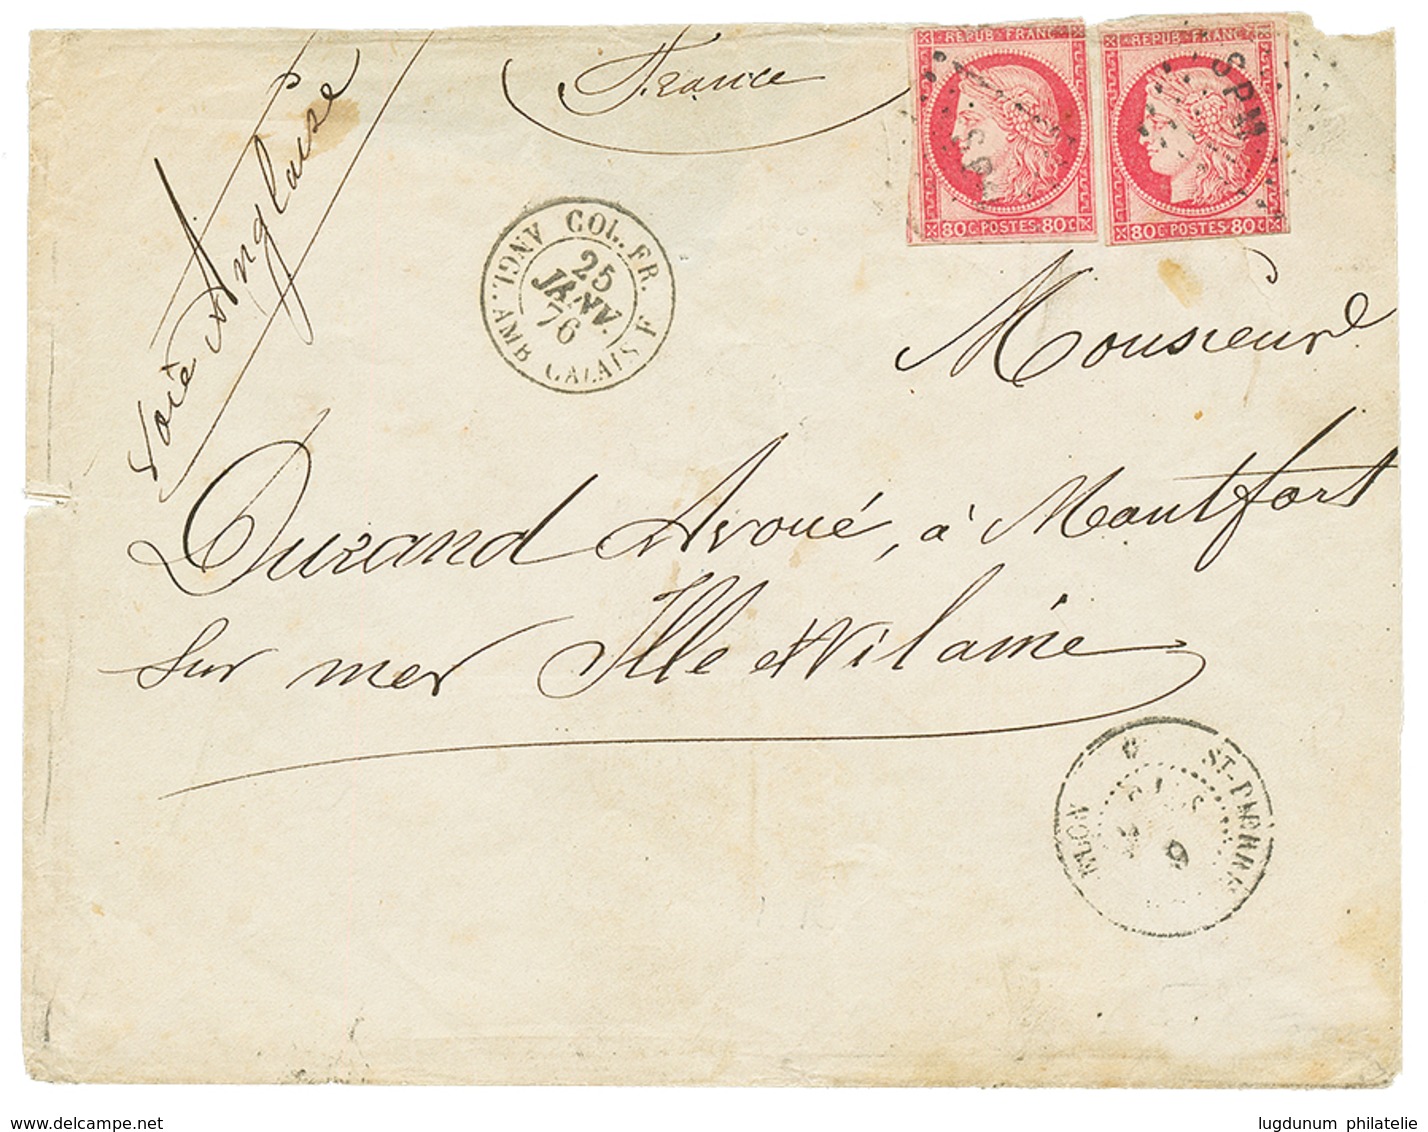 France
Voie Anglaise
REPUB. FRANC.
80C POSTES 80C
REPUB. FRANC.
80C POSTES 80C
SPM
SPM
COL. FR. ANGL. AMB. CALAIS F
25
JANV.
76
Monsieur
Durand Avoué, à Montfort
sur mer Ille et Vilaine
ST-PIERRE
6
www.delcampe.net
lugdunum philatelie